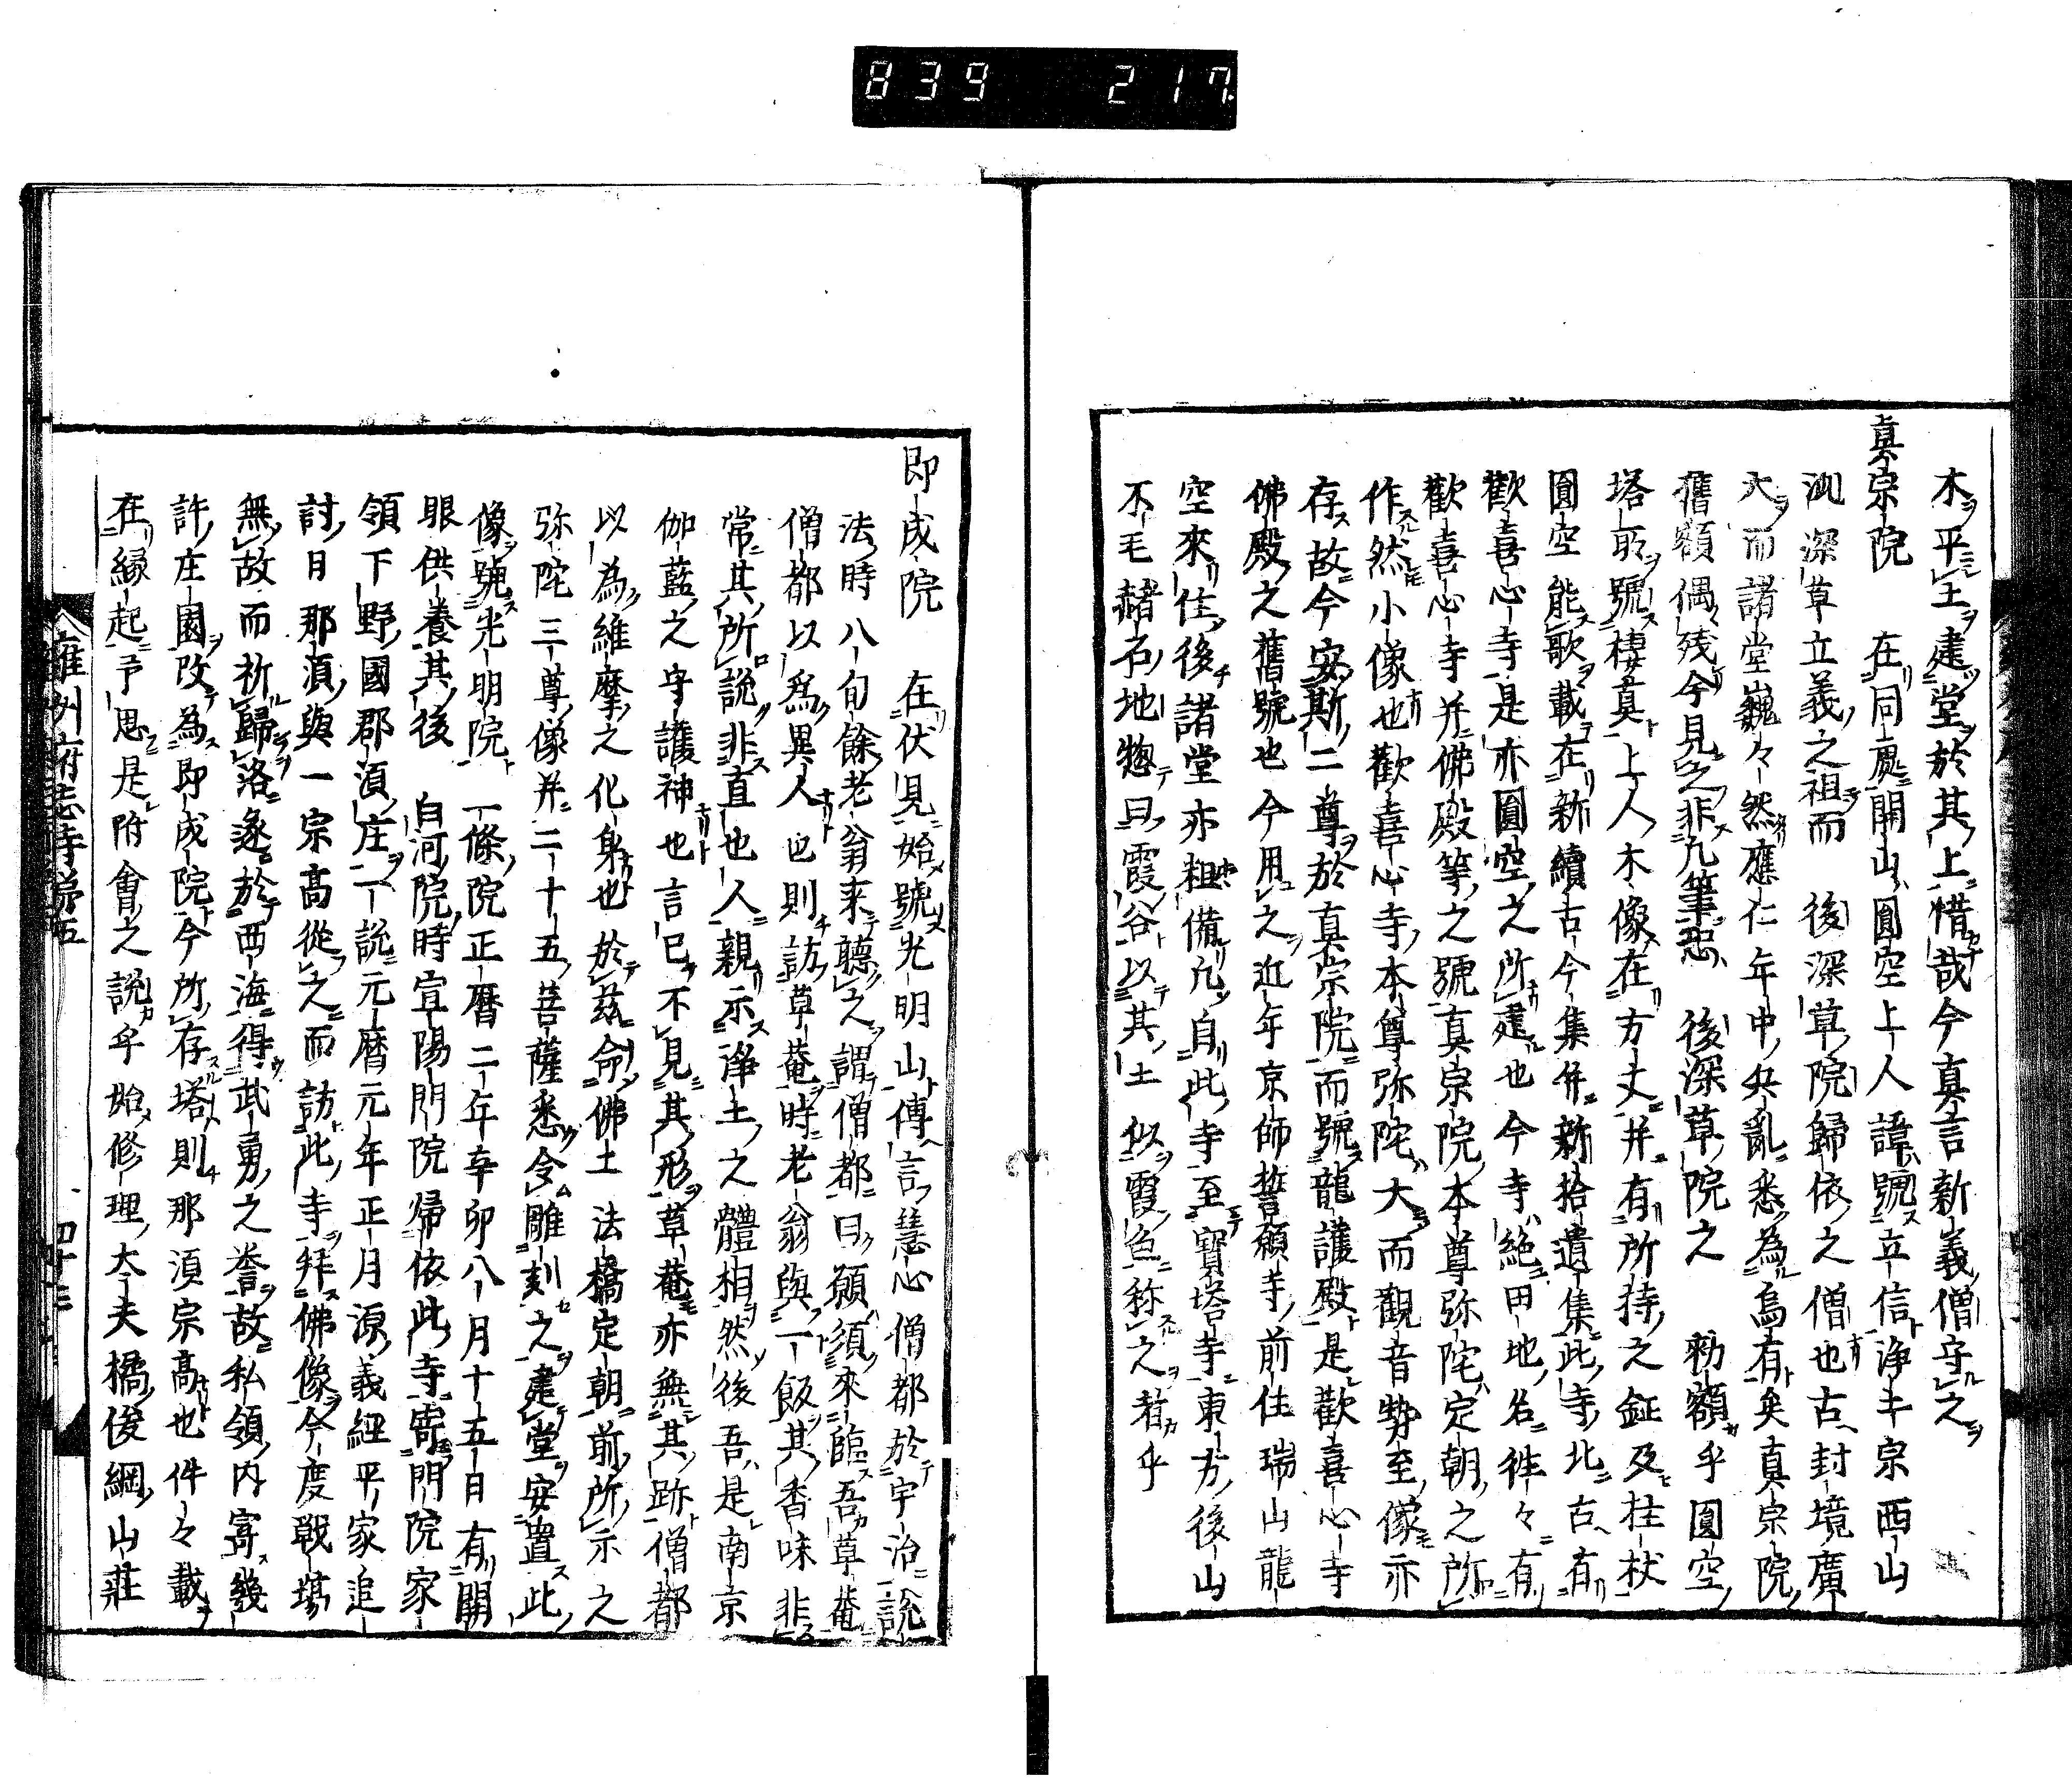 839 217
木平土建堂於其上惜哉今真言新義僧守之
真宗院 在同處開山圓空上人諱號立信浄土宗西山
派深草立義之祖而 後深草院歸依之僧也古封境廣
大而諸堂巍々然應仁年中央亂悉為烏有矣真宗院
舊額偶残今見之非凡筆恐 後深草院之 勅額乎圓空
塔所號棲真上人木像在方丈并有所持之鉦及柱杖
圓空能歌載在新續古今集并新拾遺集此寺北古有
歡喜心寺是亦圓空之所建也今寺絶田地名徃々有
歡喜心寺并佛殿等之號真宗院本尊弥陀定朝之所
作然小像也歡喜心寺本尊弥陀大而觀音勢至像亦
存故今安斯二尊於真宗院而號龍護殿是歡喜心寺
佛殿之舊號也今用之近年京師誓願寺前住瑞山龍
空來住後諸堂亦粗備凡自此寺至寳塔寺東方後山
不毛赭石地惣曰霞谷以其土似霞色称之者乎
即成院 在伏見始號光明山傳言慧心僧都於宇治説
法時八旬餘老翁来聽之謂僧都曰願須來臨吾草菴
僧都以為異人也則訪草菴時老翁與一飯其香味非
常其所説非直也人親示浄土之體相然後吾是南京
伽藍之守護神也言已不見其形草菴亦無其跡僧都
以為維摩之化身也於茲命佛土 法橋定朝前所示之
弥陀三尊像并二十五菩薩悉令雕刻之建堂安置此
像號光明院 一條院正暦二年辛卯八月十五日有開
眼供養其後 白河院時宣陽門院帰依此寺寄門院家
領下野國郡湏庄一説元暦元年正月源義經平家追
討日那湏與一宗高從之而訪此寺拜佛像今度戦塲
無故而祈歸洛遂於西海得武勇之誉故私領内寄幾
許庄園改為即成院今所存塔則那湏宗高也件々載
在縁起予思是附會之説乎始修理大夫橘俊綱山莊
雍州府志寺第五 四十三